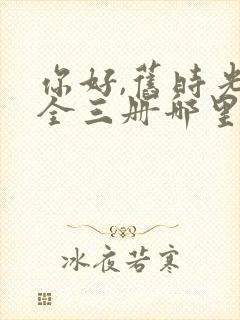 你好,舊時光
全三册哪里
冰夜若寒